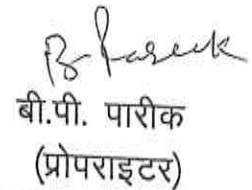 B Pareek
बी.पी. पारीक
(प्रोपराइटर)